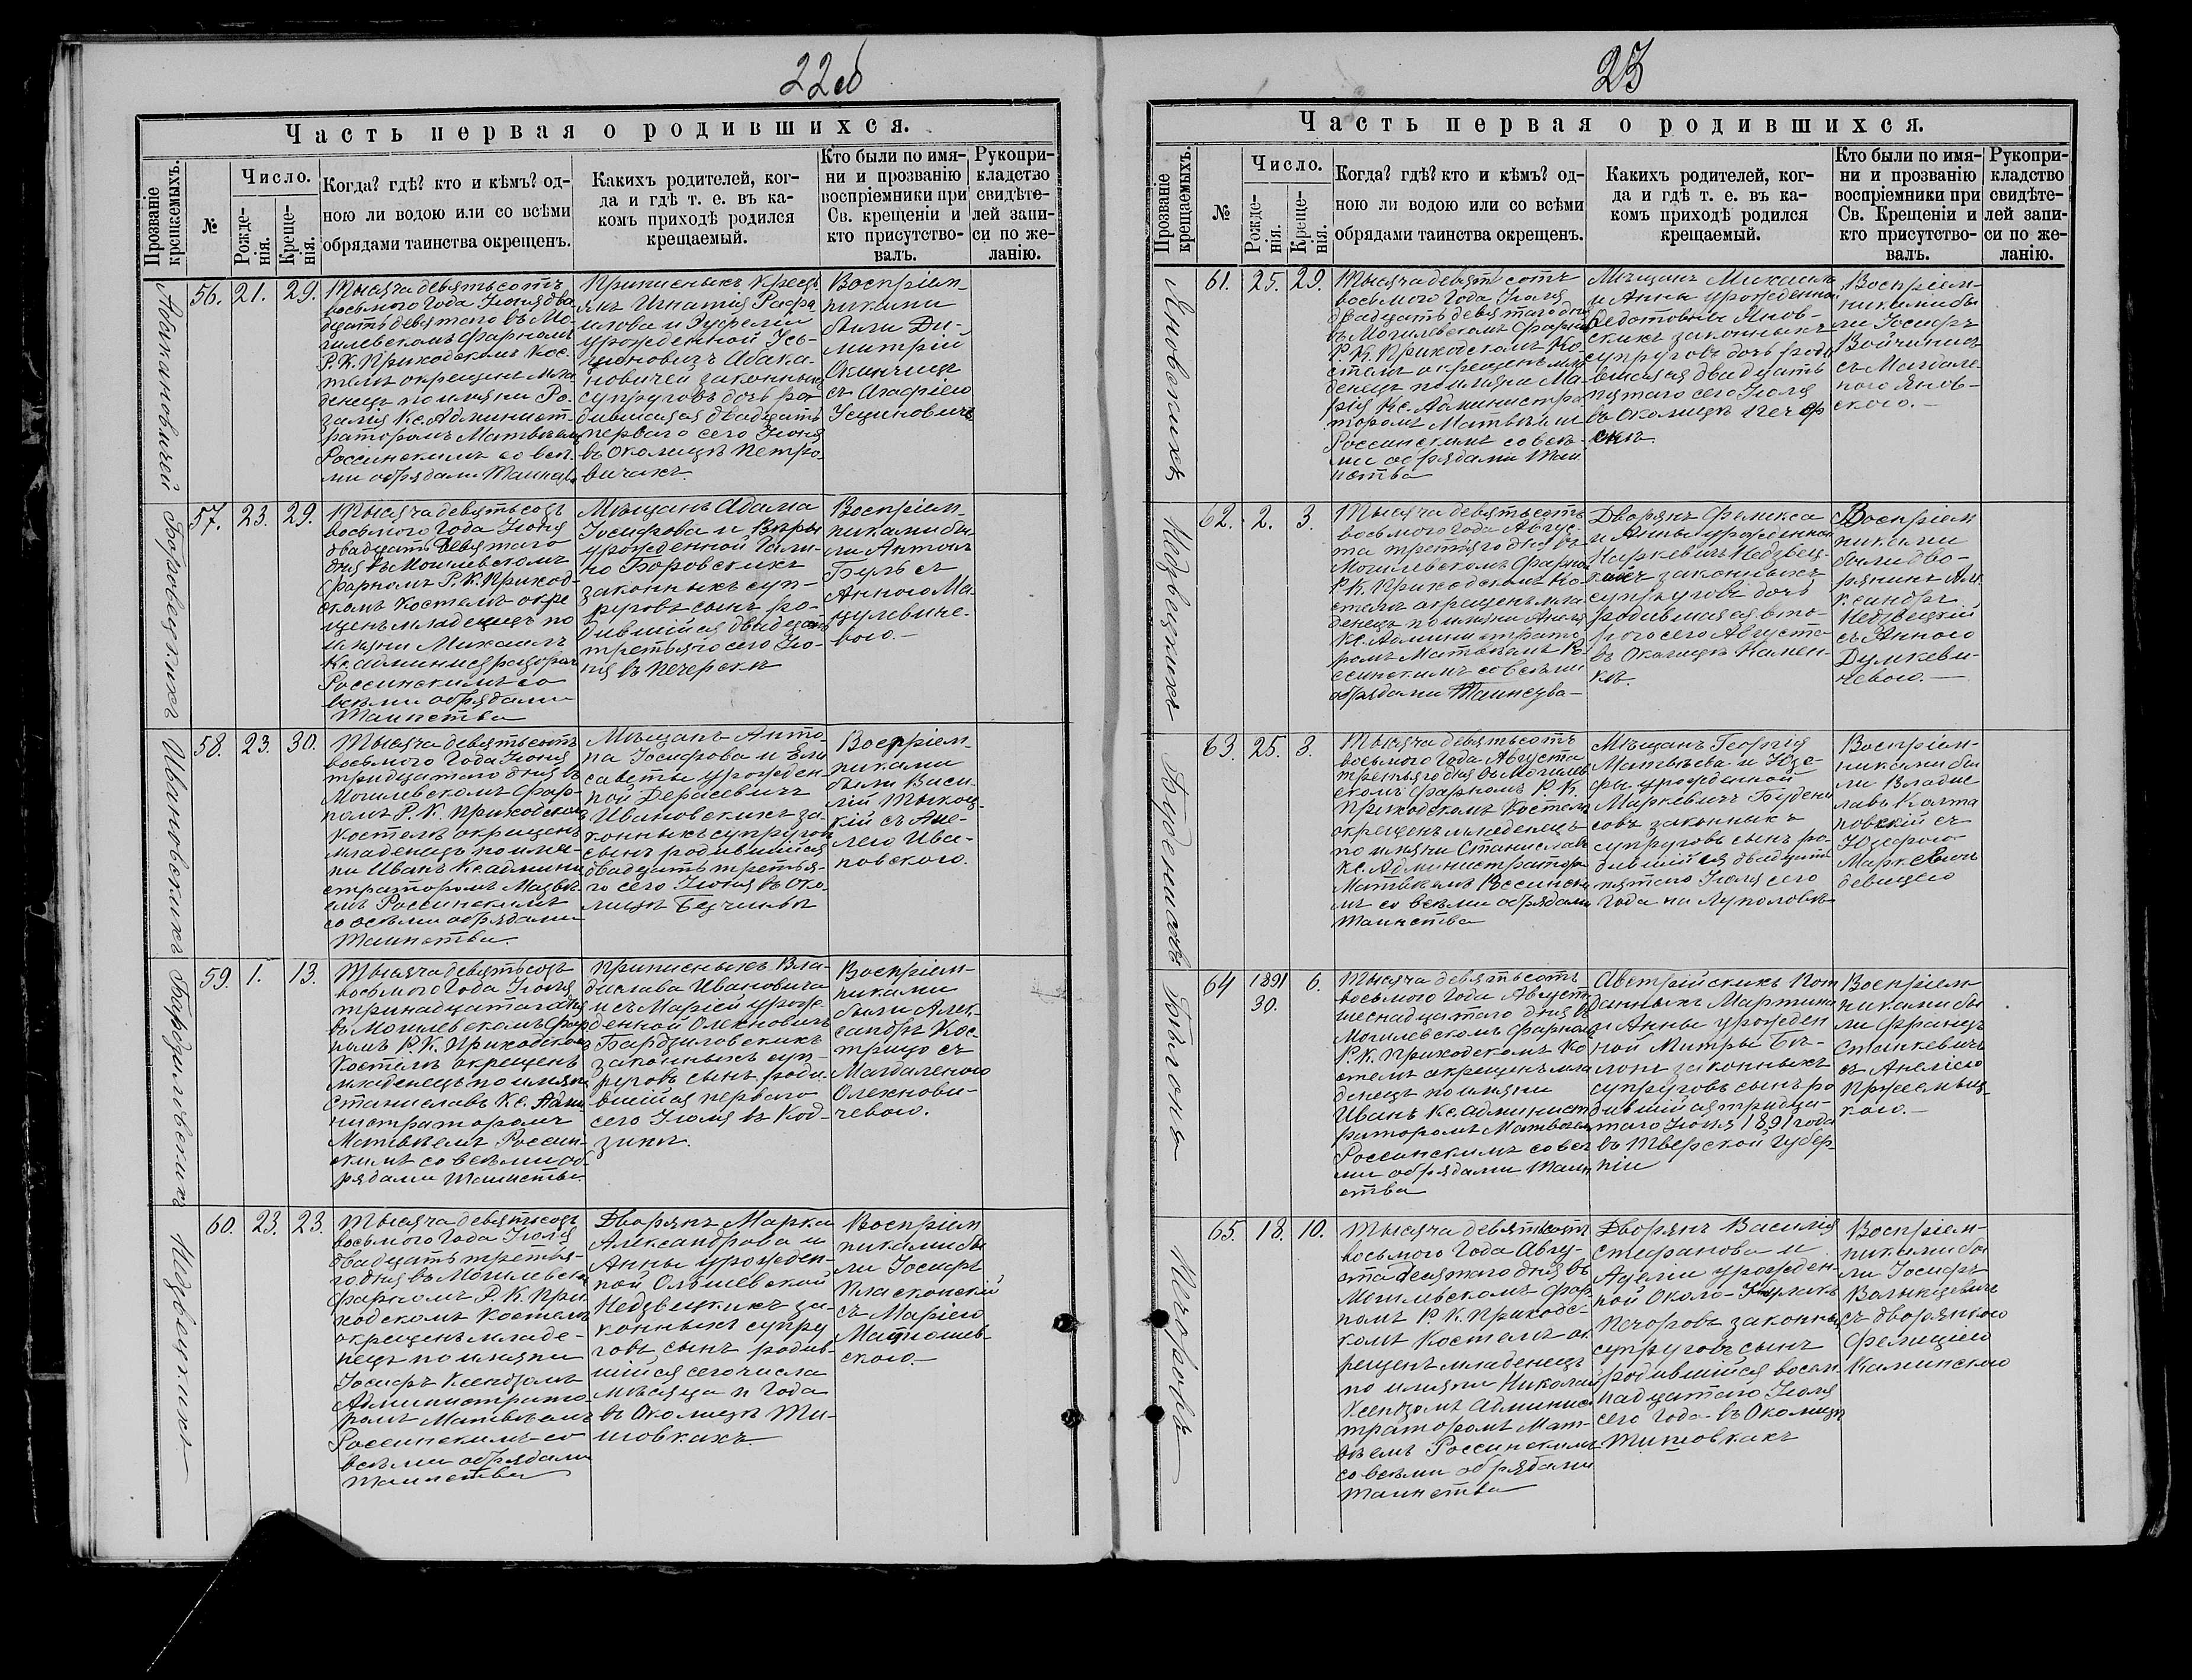 22об
Часть первая о родившихся.
Прозваніе крещаемыхъ.
№
Число.
Рожденія.
Крещенія.
Когда? гдѣ? кто и кѣмъ? одною ли водою или со всѣми обрядами таинства окрещенъ.
Какихъ родителей, когда и гдѣ т. е. въ какомъ приходѣ родился крещаемый.
Кто были по имяни и прозванію воспріемники при Св. крещеніи и кто присутствовалъ.
Рукоприкладство свидѣтелей записи по желанію.
56. 21. 29.
Тысяча девятьсотъ
восьмого Года Іюня два
дцать девятого въ Мо-
гилевскомъ Фарномъ
Р. К. Приходскомъ Кос-
телѣ окрещенъ мла
денецъ по имяни Ро-
залія Кс. Админист-
раторомъ Матвѣемъ
Россинскимъ со всѣ-
ми обрядами Таинств.
Приписныхъ Крест
янъ Игнатія Рафа
илова и Эуфеміи
урожденной Усь-
новичей законныхъ
супруговъ дочь ро-
дившаяся двадцать
перваго сего Іюня
въ Околицѣ Петро-
вичахъ.
Воспріем-
никами
были Ди-
митрій
съ Агафіею
Усциновичъ
Боровскихъ
57. 23. 29.
Тысяча девятьсотъ
восьмого Года Іюня
двадцать девятаго
дня въ Могилевскомъ
Фарномъ Р. К. Приход-
скомъ Костелѣ окре
щенъ младенецъ по
имяни Михаилъ
Кс. администраторомъ
Россинскимъ со
всѣми обрядами
Таинства
Мѣщанъ Адама
Іосифова и Вѣры
урожденной Гали-
но Боровскихъ
законныхъ суп-
руговъ сынъ ро-
дившійся двадцать
третьяго сего Ію-
ня въ Печерскѣ
Воспріем-
никами бы-
ли Антонъ
Буль съ
Анною Ма-
цулевиче-
вою.—
Ивановскихъ
58. 23. 30.
Тысяча девятьсотъ
восьмого Года Іюня
тридцатаго дня въ
Могилевскомъ Фар-
номъ Р. К. Приходскомъ
Костелѣ окрещенъ
младенецъ по имя-
ни Иванъ Кс. админи
страторомъ Матвѣ-
емъ Россинскимъ
со всѣми обрядами
Таинства.
Мѣщанъ Анто-
на Іосифова и Ели
саветы урожден-
ной Дерасевичъ
Ивановскихъ за-
конныхъ супруговъ
сынъ родившійся
двадцать третья-
го сего Іюня въ Око-
лицѣ
Воспріем-
никами
были Васи-
лій Тыкоц-
кій съ Ане-
лею Ива-
новскою.
59. 1. 13.
Тысяча девятьсотъ
восьмого Года Іюля
тринадцатаго дня
въ Могилевскомъ Фар
номъ Р. К. Приходскомъ
Костелѣ окрещенъ
младенецъ по имяни
Станиславъ Кс. Адми
нистраторомъ
Матвѣемъ Россин-
скимъ со всѣми об-
рядами Таинства.
Приписныхъ Вла-
дислава Ивановича
и съ Маріей урож-
денной Олехновичъ
законныхъ суп-
руговъ сынъ роди-
вшійся перваго
сего Іюля въ Код-
Воспріем-
никами
были Алек-
сандръ Кос-
трицо съ
Магдаленою
Олехнови-
чевою.
Недзвецкихъ
60. 23. 23.
Тысяча девятьсотъ
восьмого Года Іюля
двадцать третья-
го дня въ Могилевск
Фарномъ Р. К. При-
ходскомъ Костелѣ
окрещенъ младе-
нецъ по имяни
Іосифъ Ксендзомъ
Администрато-
ромъ Матвѣемъ
Россинскимъ со
всѣми обрядами
Таинства
Дворянъ Марка
Александрова и
Анны урожден-
ной Ольшевской
Недзвецкихъ за-
конныхъ супру
говъ сынъ родив-
шійся сего числа
мѣсяца и Года
въ Околицѣ Ти-
шовкахъ.
Воспріем
никами бы
ли Іосифъ
Пласконскій
съ Маріею
скою.—
23
Часть первая о родившихся.
Прозваніе крещаемыхъ.
№
Число.
Рожденія.
Крещенія.
Когда? гдѣ? кто и кѣмъ? одною ли водою или со всѣми обрядами таинства окрещенъ.
Какихъ родителей, когда и гдѣ т. е. въ какомъ приходѣ родился крещаемый.
Кто были по имяни и прозванію воспріемники при Св. Крещеніи и кто присутствовалъ.
Рукоприкладство свидѣтелей записи по желанію.
Яновскихъ
61. 25. 29.
Тысяча девятьсотъ
восьмого Года Іюля
двадцать девятаго дня
въ Могилевскомъ Фарном
Р. К. Приходскомъ Ко-
стелѣ окрещенъ мла
денецъ по имяни Ма-
рія Кс. Администра
торомъ Матвѣемъ
Россинскимъ со всѣ-
ми обрядами Таи
нства
Мѣщанъ Михаила
и Анны урожденной
Федотовны Янов-
скихъ законныхъ
супруговъ дочь роди
вшаяся двадцать
пятаго сего Іюля
въ Околицѣ Печер
скѣ
Воспріем-
никами бы
ли Іосифъ
съ Магдале-
ною Янов-
скою.—
Недзвецкихъ
62. 2. 3.
Тысяча девятьсотъ
восьмого Года Авгус-
та третьяго дня въ
Могилевскомъ Фарном
Р. К. Приходскомъ Ко-
стелѣ окрещенъ мла-
денецъ по имяни
Кс. Администрато
ромъ Матвѣемъ Ро-
ссинскимъ со всѣми
обрядами Таинства—
Дворянъ Феликса
и Анны урожденной
Недзвец-
кихъ законныхъ
супруговъ дочь
родившаяся вто-
рого сего Августа
въ Околицѣ Камен-
кѣ.
Воспріем
никами
были дво-
рянинъ Але
ксандръ
Недзвецкій
съ Анною
Думкеви-
чевою.—
63. 25. 3.
Тысяча девятьсотъ
восьмого Года Августа
третьяго дня въ Могилев
скомъ Фарномъ Р. К.
Приходскомъ Костелѣ
окрещенъ младенецъ
по имяни Станиславъ
Кс. Администратором
Матвѣемъ Россински
мъ со всѣми обрядами
Таинства
Мѣщанъ Георгія
Матвѣева и Юзе-
фы урожденной
Маркевичъ Будени
совъ законныхъ
супруговъ сынъ ро-
дившійся двадцать
пятаго Іюля сего
Года на Луполовѣ
Воспріем-
никами бы
ли Владис
лавъ Колта
новскій съ
Юзефою
Маркевичъ
девицею
64 1891 30. 6.
Тысяча девятьсотъ
восьмого Года Августа
шеснадцатаго дня въ
Могилевскомъ Фарномъ
Р. К. Приходскомъ Ко
стелѣ окрещенъ мла
денецъ по имяни
Иванъ Кс. админист
раторомъ Матвѣемъ
Россинскимъ со всѣ
ми обрядами Таин
ства
Австрійскихъ Под
данныхъ Мартина
и Анны урожден
ной Митры Бѣ-
лонъ законныхъ
супруговъ сынъ ро
дившійся тридца-
таго Іюня 1891 года
въ Тверской Губер-
ніи
Воспріем
никами бы
ли Францъ
Станкевичъ
съ Анеліею
кою.—
Печоровъ
65. 18. 10.
Тысяча девятьсотъ
восьмого Года Авгу-
ста десятаго дня въ
Могилевскомъ Фар
номъ Р. К. Приходс-
комъ Костелѣ ок
рещенъ младенецъ
по имяни Николай
Ксендзомъ Админис
траторомъ Мат-
вѣемъ Россинскимъ
со всѣми обрядами
Таинства
Дворянъ Василія
Стефанова и
Адели урожден-
ной Около-Кулакъ
Печоровъ законныхъ
супруговъ сынъ
родившійся восем
надцатаго Іюля
сего Года въ Околицѣ
Тишовкахъ
Воспріем-
никами бы
ли Іосифъ
Волынцевичъ
съ дворянкою
Фелиціею
Каминскою